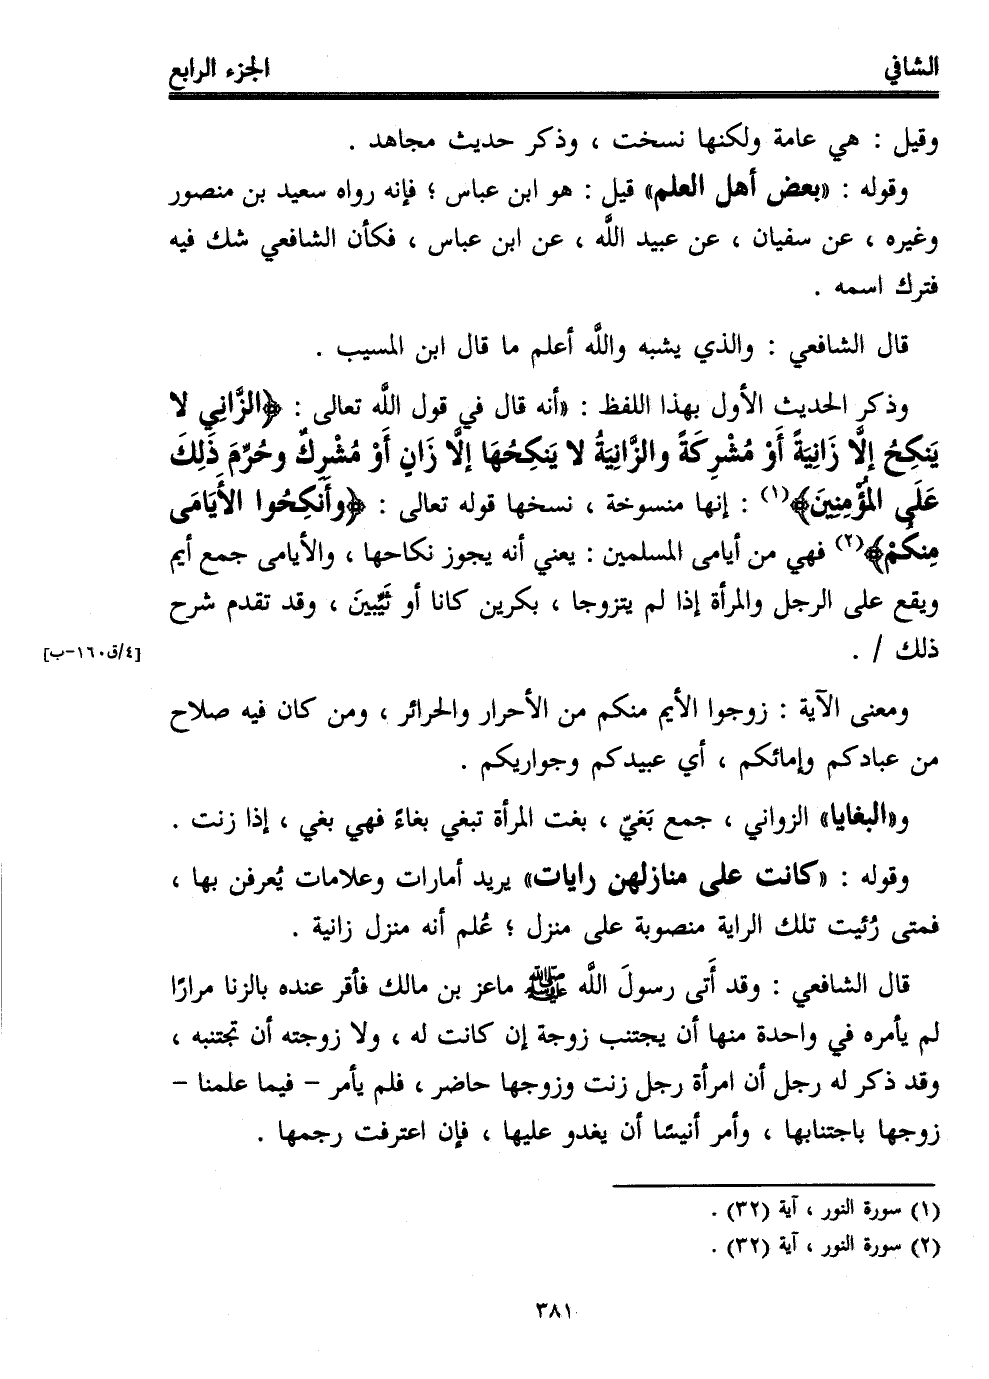 الشافي
الجزء الرابع
وقيل : هي عامة ولكنها نسخت ، وذكر حديث مجاهد .
وقوله : «بعض أهل العلم» قيل : هو ابن عباس ؛ فإنه رواه سعيد بن منصور
وغيره ، عن سفيان ، عن عبيد اللَّه ، عن ابن عباس ، فكأن الشافعي شك فيه
فترك اسمه .
قال الشافعي : والذي يشبه واللَّه أعلم ما قال ابن المسيب .
وذكر الحديث الأول بهذا اللفظ : «أنه قال في قول اللَّه تعالى : ﴿الزَّانِي لا
يَنكِحُ إلَّا زَانِيَةً أَوْ مُشْرِكَةً والزَّانِيَةُ لا يَنكِحُهَا إلَّا زَانٍ أَوْ مُشْرِكٌ وحُرِّمَ ذَلِكَ
عَلَى المُؤْمِنِينَ﴾(١) : إنها منسوخة ، نسخها قوله تعالى : ﴿وأَنكِحُوا الأَيَامَى
مِنكُمْ﴾(٢) فهي من أيامى المسلمين : يعني أنه يجوز نكاحها ، والأيامى جمع أيم
ويقع على الرجل والمرأة إذا لم يتزوجا ، بكرين كانا أو ثَيِّبينَ ، وقد تقدم شرح
ذلك / .
[٤/ق١٦٠-ب]
ومعنى الآية : زوجوا الأيم منكم من الأحرار والحرائر ، ومن كان فيه صلاح
من عبادكم وإمائكم ، أي عبيدكم وجواريكم .
و«البغايا» الزواني ، جمع بَغيّ ، بغت المرأة تبغي بغاءً فهي بغي ، إذا زنت .
وقوله : «كانت على منازلهن رايات» يريد أمارات وعلامات يُعرفن بها ،
فمتى رُئيت تلك الراية منصوبة على منزل ؛ عُلم أنه منزل زانية .
قال الشافعي : وقد أَتى رسولَ اللَّه ﷺ ماعز بن مالك فأقر عنده بالزنا مرارًا
لم يأمره في واحدة منها أن يجتنب زوجة إن كانت له ، ولا زوجته أن تجتنبه ،
وقد ذكر له رجل أن امرأة رجل زنت وزوجها حاضر ، فلم يأمر – فيما علمنا –
زوجها باجتنابها ، وأمر أنيسًا أن يغدو عليها ، فإن اعترفت رجمها .
(١) سورة النور ، آية (٣٢) .
(٢) سورة النور ، آية (٣٢) .
٣٨١